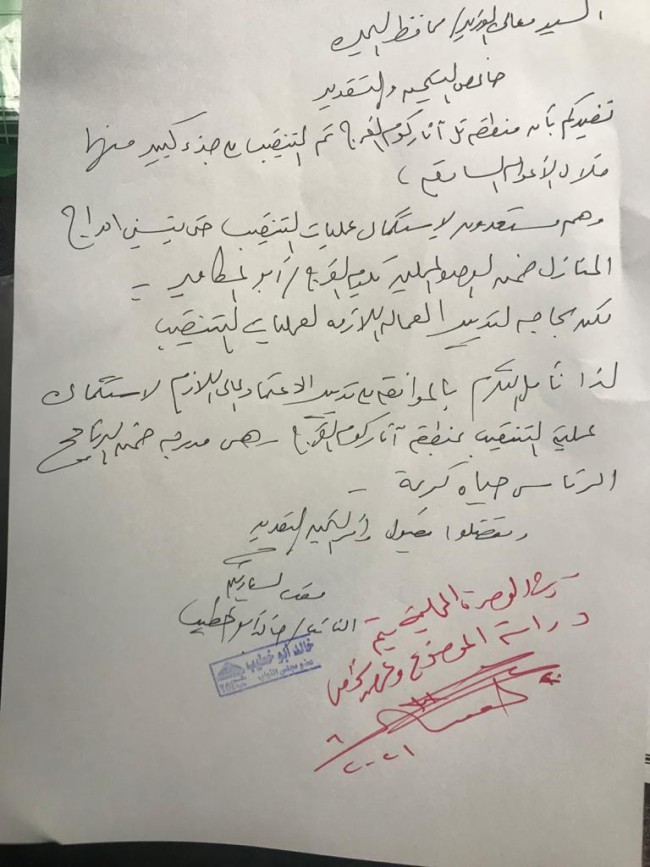 السيد معالي الوزير / محافظ البحيرة
خالص التحية والتقدير
نفيدكم بأن منطقة تل آثار كوم الفرج تم التنقيب بجزء كبير منها
خلال الأعوام السابقة
وهم مستعدون لاستكمال عمليات التنقيب حتى يتسنى ادراج
المنازل ضمن كوم الفرج / أبو المطامير
بحاجه لتدبير العماله اللازمه لعمليات التنقيب
لذا نأمل التكرم بالموافقه تدبير الاعتماد المالي اللازم لاستكمال
عملية التنقيب بمنطقة آثار كوم الفرج وهى مدرجه ضمن البرنامج
الرئاسى حياه كريمة
وتفضلوا بقبول وافر التحيه والتقدير
مقدمه لسيادتكم
النائب / خالد أبو خطيب
خالد أبو خطيب
عضو مجلس النواب
الوحدة المحلية يتم
دراسة الموضوع